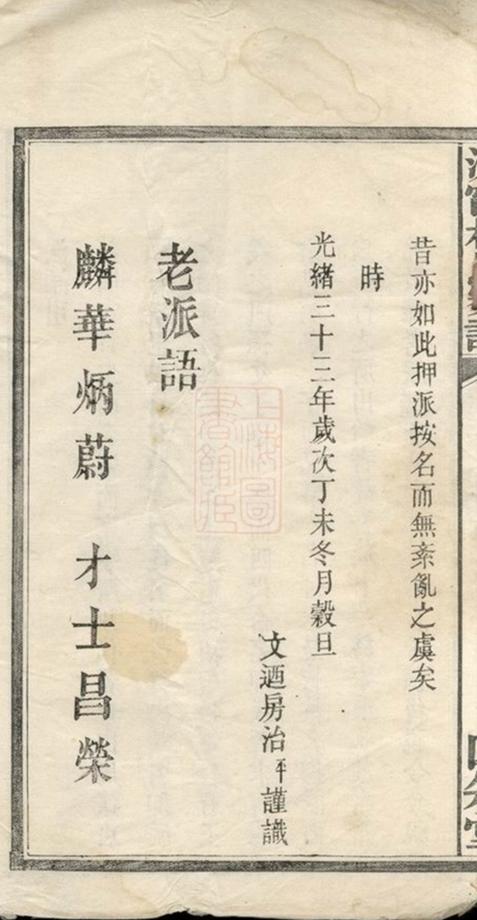 昔亦如此押派按名而無紊亂之虞矣
時
光緒三十三年歲次丁未冬月穀旦
文迺房治平謹識
老派語
麟華炳蔚 才士昌榮
上海圖書館藏